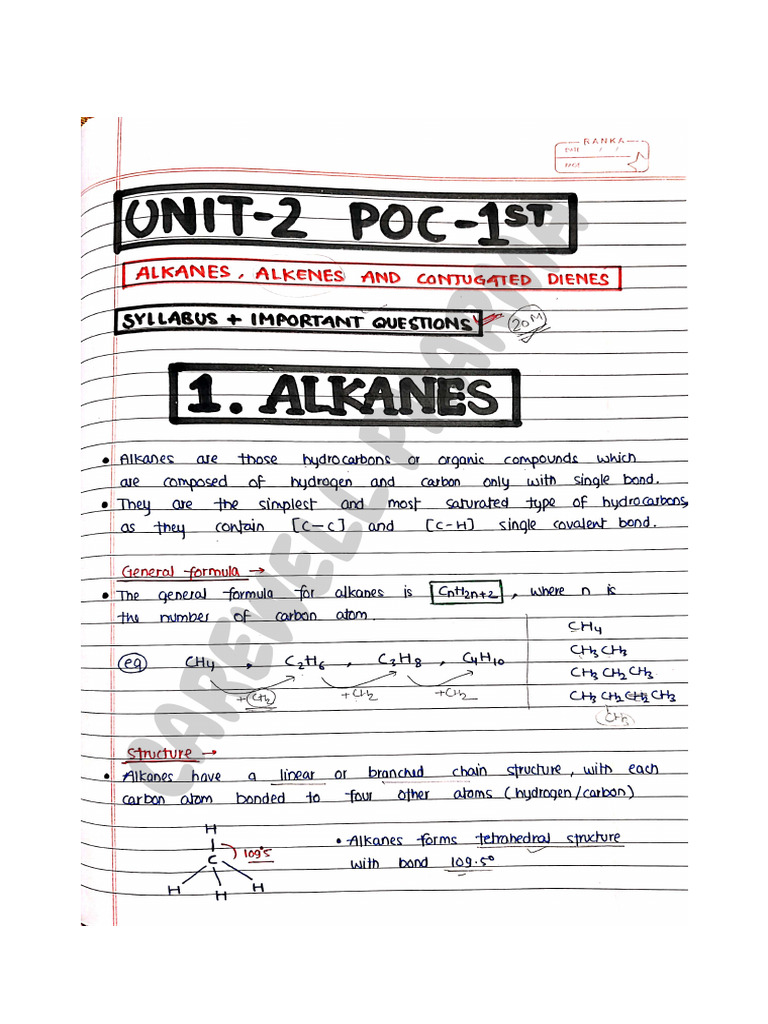 RANKA
DATE / /
PAGE
UNIT-2 POC-1ST
ALKANES, ALKENES AND CONJUGATED DIENES
SYLLABUS + IMPORTANT QUESTIONS 20M
1. ALKANES
• Alkanes are those hydrocarbons or organic compounds which
are composed of hydrogen and carbon only with single bond.
• They are the simplest and most saturated type of hydrocarbons,
as they contain [C-C] and [C-H] single covalent bond.
General formula →
• The general formula for alkanes is CnH2n+2, where n is
the number of carbon atom.
eg CH4, C2H6, C3H8, C4H10
+CH2 +CH2 +CH2
CH4
CH3 CH3
CH3 CH2 CH3
CH3 CH2 CH2 CH3
CH3
Structure →
• Alkanes have a linear or branched chain structure, with each
carbon atom bonded to four other atoms (hydrogen/carbon)
H
C 109°5
H H H
• Alkanes forms tetrahedral structure
with bond 109.5°
CAREWELL PHARMA